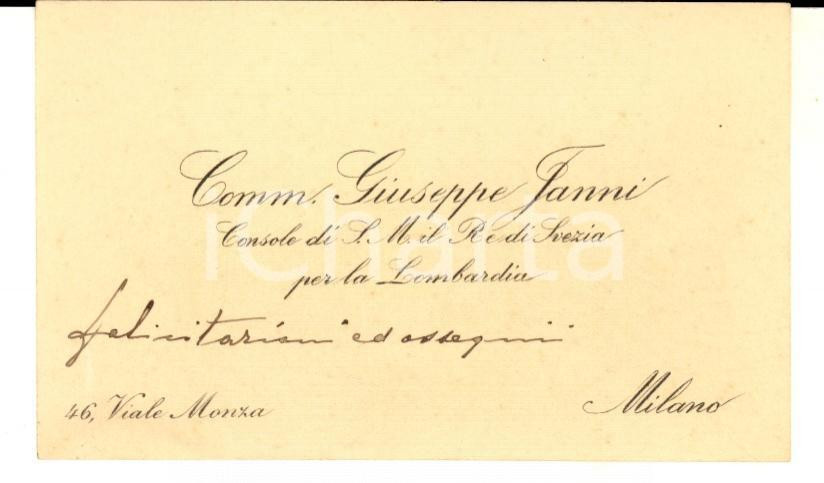 Comm. Giuseppe Janni
Console di S. M. il Re di Svezia
per la Lombardia
felicitazioni ed ossequii
46, Viale Monza
Milano
iCharta